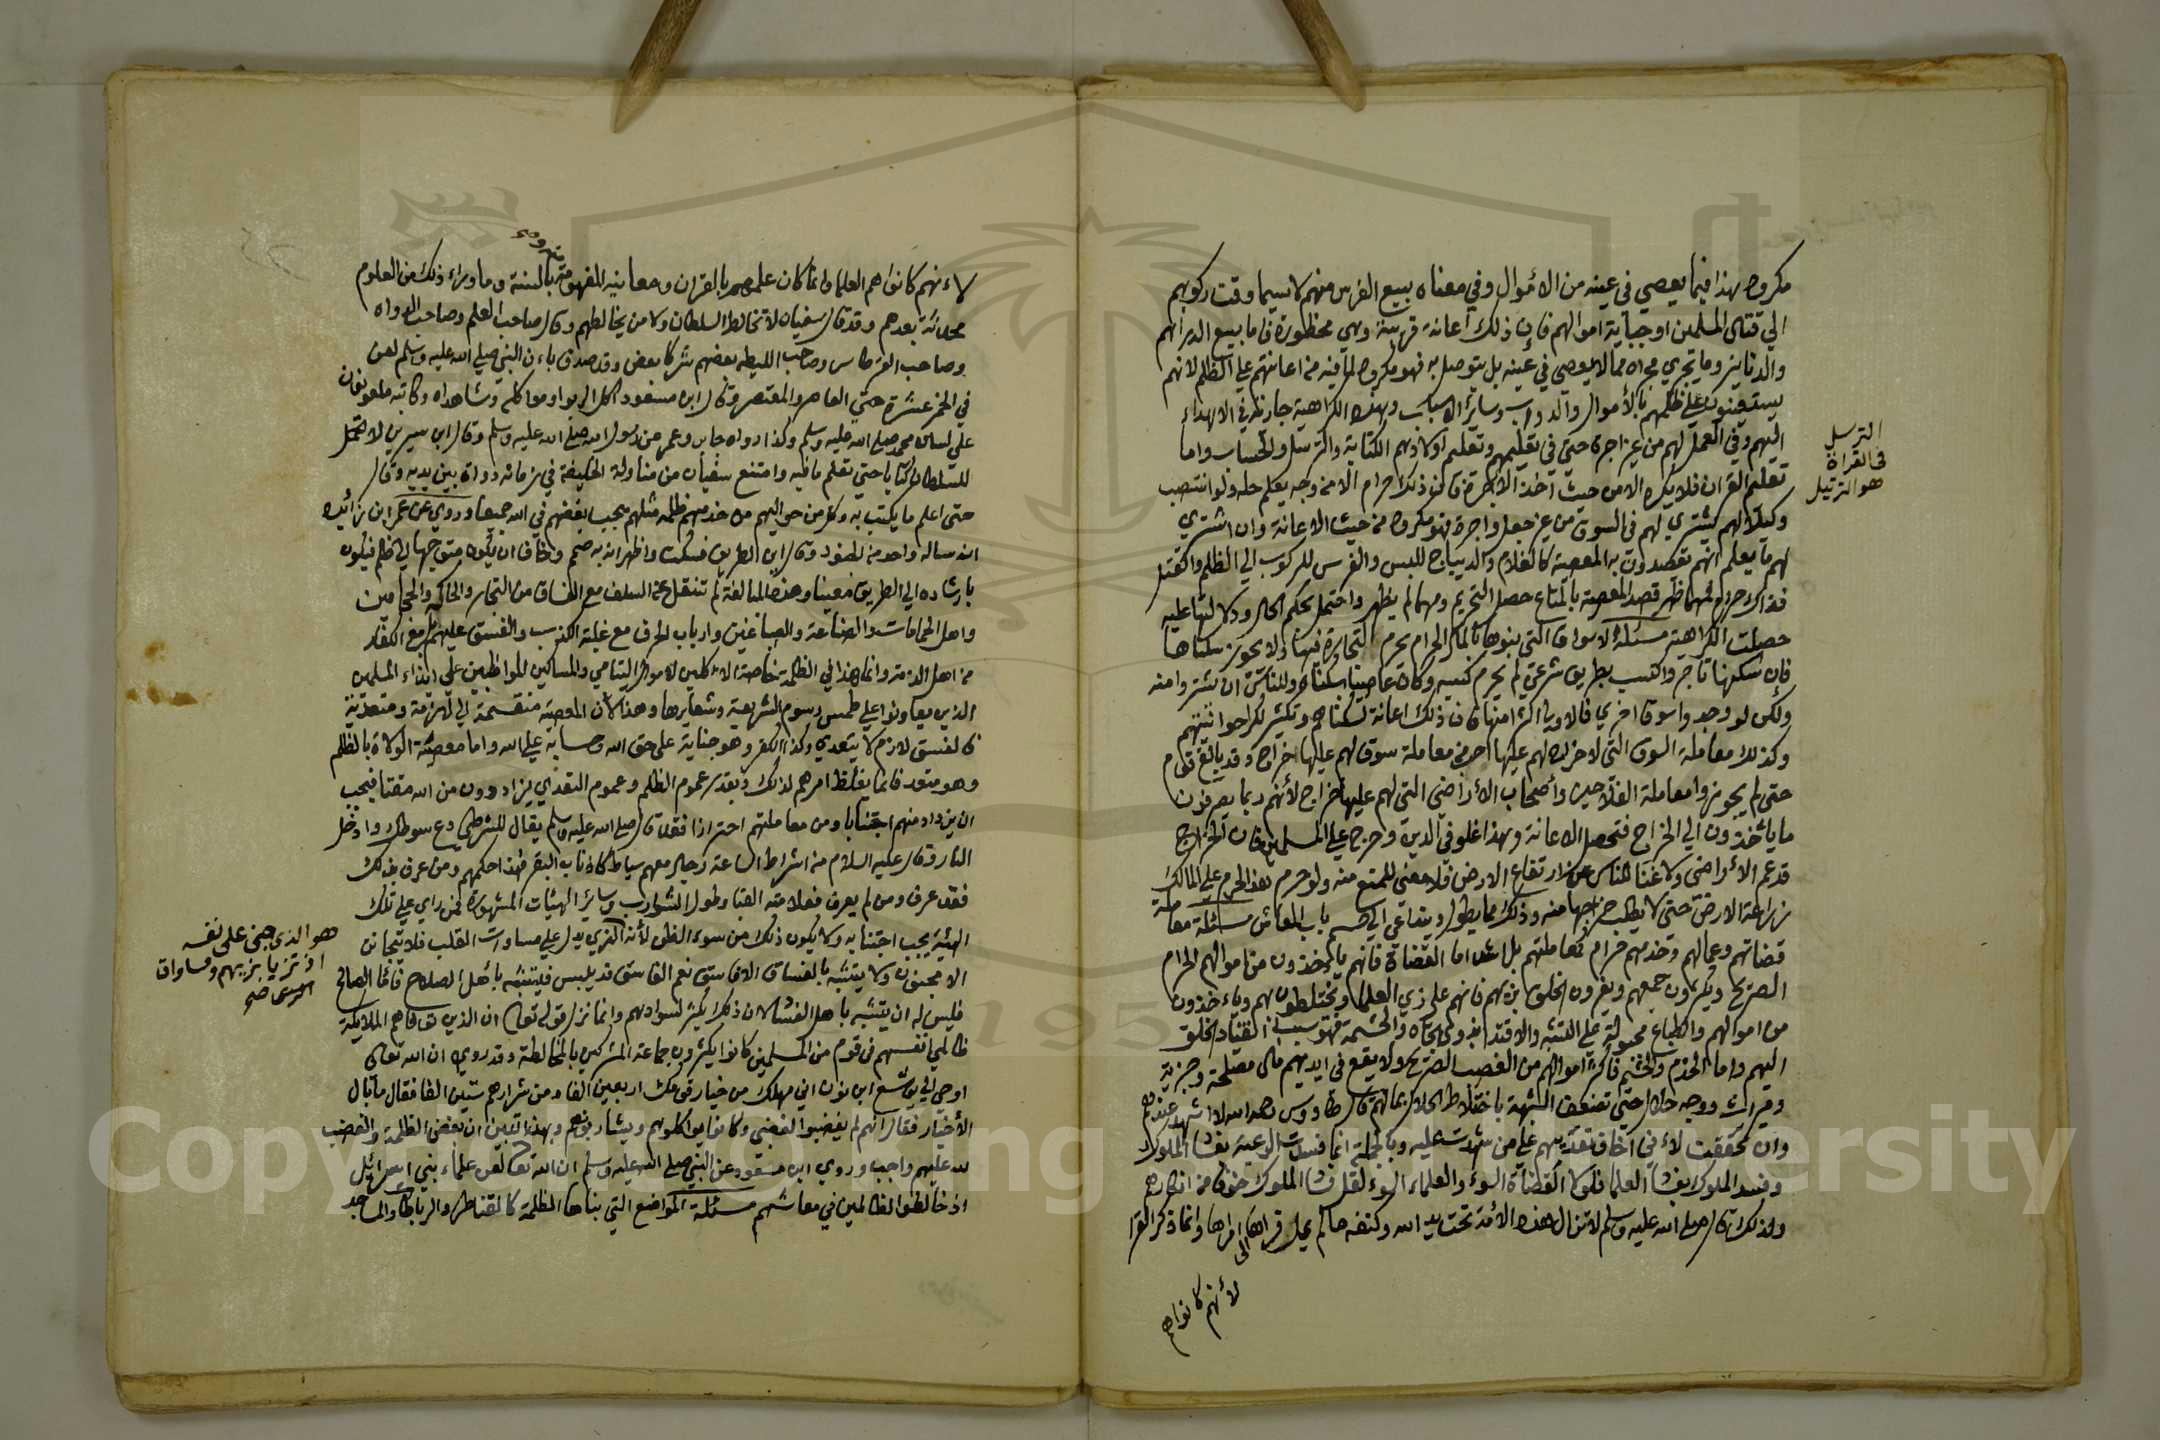 مكروه هذا فيما يعصي في عينه من الأموال وفي معناه بيع الفرس منهم لا سيما وقت ركوبهم
الي قتال المسلمين او جباية اموالهم فان ذلك اعانة قريبة وهي محظورة فاما بيع الدراهم
والدنانير وما يجري مجراه مما لا يعصي في عينه بل يتوصل به فهو مكروه لما فيه من اعانتهم علي الظلم لانهم
يستعينون علي ظلمهم بالأموال والدواب وسائر الاسباب وهذه الكراهية جارية في الاهداء
اليهم وفي العمل لهم من غير اجرة حتي في تعليمهم وتعليم اولادهم الكتابة والترسل والحساب واما
تعليم القرآن فلا يكره الا من حيث اخذ الاجرة فان ذلك حرام الا من وجه يعلم حله ولو انتصب
وكيلا لهم يشتري لهم في السوق من غير جعل واجرة فهو مكروه من حيث الاعانة وان اشتري
لهم ما يعلم انهم يقصدون به المعصية كالغلام والديباج للبس والفرس للركوب الي الظلم والقتل
فذلك حرام فمهما ظهر قصد المعصية بالمتاع حصل التحريم ومهما لم يظهر واحتمل بحكم الحال ودلالتها عليه
حصلت الكراهية مسئلة الاسواق التي بنوها بالمال الحرام يحرم التجارة فيها ولا يجوز سكناها
فان سكنها تاجر واكتسب بطريق شرعي لم يحرم كسبه وكان عاصيا بسكناه وللناس ان يشتروا منه
ولكن لو وجدوا سوقا اخري فالاولي الشراء منها فان ذلك اعانة لسكناهم وتكثير لكراء حوانيتهم
وكذلك معاملة السوق التي لا خراج لهم عليها احب من معاملة سوق لهم عليها خراج وقد بالغ قوم
حتي لم يجوزوا معاملة الفلاحين وأصحاب الأراضي التي لهم عليها خراج لأنهم ربما يصرفون
ما يأخذون الي الخراج فتحصل الاعانة وهذا غلو في الدين وحرج علي المسلمين فان الخراج
قد عم الأراضي ولا غنا للناس عن ارتفاع الارض فلا معني للمنع منه ولو حرم هذا لحرم علي المالك
زراعة الارض حتي لا يطلب خراجها منه وذلك مما يطول ويتداعي الي حسم باب المعاش مسئلة معاملة
قضاتهم وعمالهم وخدمهم حرام كمعاملتهم بل اشد اما القضاة فانهم يأخذون من اموالهم الحرام
الصريح ويكثرون جمعهم ويغرون الخلق بزيهم فانهم علي زي العلماء ويختلطون بهم ويأخذون
من اموالهم والطباع مجبولة علي التشبه والاقتداء بذوي الجاه والحشمة فهو سبب انقياد الخلق
اليهم واما الخدم والحشم فأكثر اموالهم من الغصب الصريح ولا يقع في ايديهم مال مصلحة وجزية
وميراث ووجه حلال حتي تضعف الشبهة باختلاط الحلال بمالهم قال طاووس رحمه الله لا اشهد عندهم
وان تحققت لأني اخاف تعديهم علي من شهدت عليه وبالجملة انما فسدت الرعية بفساد الملوك
وفسد الملوك بفساد العلماء فلولا القضاة السوء والعلماء السوء لقل فساد الملوك خوفا من انكارهم
ولذلك قال صلي الله عليه وسلم لا تزال هذه الأمة تحت يد الله وكنفه ما لم يمل قراءها الى امراها وانما ذكر القرا
لأنهم كانوا هم
الترسل
في القراة
هو الترتيل
لاءنهم كانوا هم العلما وانما كان علمهم بالقران ومعانيه المفهومة بالسنة وما وراء ذلك من العلوم
محدثة بعدهم وقد قال سفيان لا تخالط السلطان ولا من يخالطهم وقال صاحب القلم وصاحب الدواه
وصاحب القرطاس وصاحب الليطه بعضهم شركا بعض وقد صدق باءن النبي صلي الله عليه وسلم لعن
في الخمر عشرة حتي العاصر والمعتصر وقال ابن مسعود اكل الربوا وموكله وشاهداه وكاتبه ملعونون
علي لسان محمد صلي الله عليه وسلم وكذا رواه جابر وعمر عن رسول الله صلي الله عليه وسلم وقال ابن سيرين لا تحمل
للسلطان كتابا حتي تعلم ما فيه وامتنع سفيان من مناولة الخليفة في زمانه دواة بين يديه وقال
حتي اعلم ما يكتب به وكل من حواليهم من خدمهم ظلمه مثلهم يجب بغضهم في الله جميعا وروي عن عمر ابن زائده
انه ساله واحد من الجنود وقال اين الطريق فسكت واظهر انه به صمم وخاف ان يكون متوجها الي ظلم فيكون
بارشاده الي الطريق معينا وهذه المبالغة لم تنقل عن السلف مع الفساق من التجار والحاكة والحجامين
واهل الحمامات والصاغة والصباغين وارباب الحرف مع غلبة الكذب والفسق عليهم بل مع الكفار
من اهل الذمة وانما هذا في الظلمة خاصة الاكلين لاموال اليتامي والمساكين المواظبين علي ايذاء المسلمين
الذين تعاونوا علي طمس رسوم الشريعة وشعايرها وهذا لان المعصية منقسمة الي لازمة ومتعدية
فالفسق لازم لا يتعدي وكذا الكفر وهو جناية علي حق الله وحسابه علي الله واما معصية الولاة بالظلم
وهو متعد فانما يغلظ امرهم لذلك وبقدر عموم الظلم وعموم التعدي يزدادون من الله مقتا فيجب
ان يزداد منهم اجتنابا ومن معاملتهم احترازا فقد قال صلي الله عليه وسلم يقال للشرطي دع سوطك وادخل
النار وقال عليه السلام من اشراط الساعة رجال معهم سياط كاذناب البقر فهذا حكمهم ومن عرف بذلك
فقد عرف ومن لم يعرف فعلامته القبا وطول الشوارب وسائر الهيئات المشهورة فمن راي علي تلك
الهيئة يجب اجتنابه ولا يكون ذلك من سوء الظن لأنه الذي يدل علي مساوات القلب فلا يتجانن
الا مجنون ولا يتشبه بالفساق الا فاسق نعم الفاسق قد يلبس فيتشبه بأهل الصلاح فأما الصالح
فليس له ان يتشبه باهل الفساد لان ذلك تكثير لسوادهم وانما نزل قوله تعالى ان الذين توفاهم الملائكة
ظالمي انفسهم في قوم من المسلمين كانوا يكثرون جماعة المشركين بالمخالطة وقد روي ان الله تعالى
اوحي الي يوشع ابن نون اني مهلك من خيار قومك اربعين الفا ومن شرارهم ستين الفا فقال ما بال
الأخيار فقال انهم لم يغضبوا لغضبي وكانوا يواكلونهم ويشاربونهم وبهذا تبين ان بغض الظلمة والغضب
لله عليهم واجب وروي ابن مسعود عن النبي صلي الله عليه وسلم ان الله تعالى لعن علماء بني اسرائيل
اذ خالطوا الظالمين في معاشهم مسئلة المواضع التي بناها الظلمة كالقناطر والرباطات والمساجد
هو الذي جنى على نفسه
اذ تزيا بزيهم ومساوات
Copy
King
ersity
195